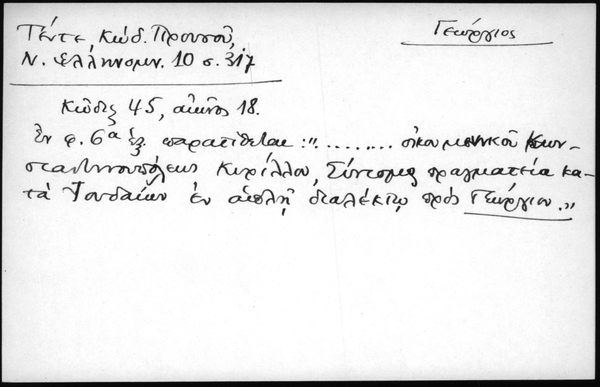 Γεώργιος
Τέντε, Κώδ. Προυσοῦ,
Ν. Ἑλληνομν. 10 σ. 317
Κῶδιξ 45, αἰῶνος 18.
Ἐν φ. 6α ἑξ. παρατίθεται: "......... οἰκουμενικοῦ Κων-
σταντινουπόλεως Κυρίλλου, Σύντομος πραγματεία κα-
τὰ Ἰουδαίων ἐν ἁπλῇ διαλέκτῳ πρὸς Γεώργιον."